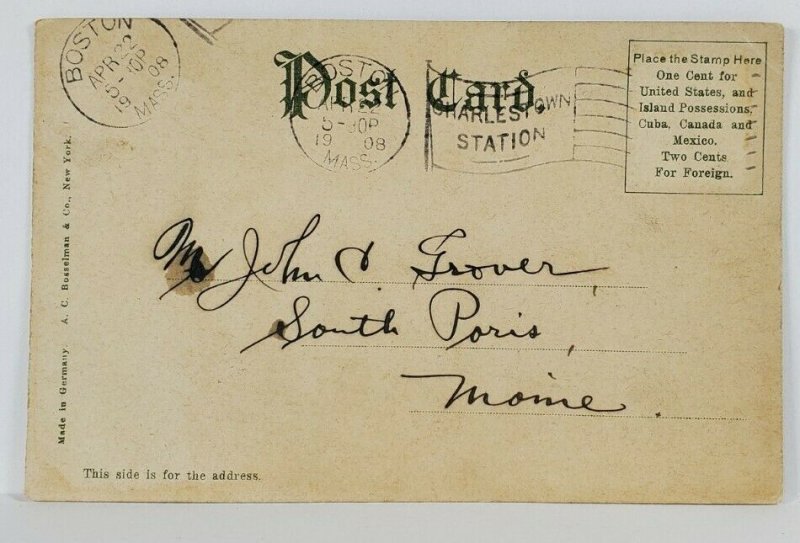 BOSTON
APR 22
5-30P
19 08
MASS.
Post Card.
BOSTON
APR 22
5-30P
19 08
MASS.
CHARLESTOWN
STATION
Place the Stamp Here
One Cent for
United States, and
Island Possessions,
Cuba, Canada and
Mexico.
Two Cents
For Foreign.
Made in Germany A. C. Bosselman & Co., New York.
Mr John C. Grover,
South Paris,
Maine.
This side is for the address.